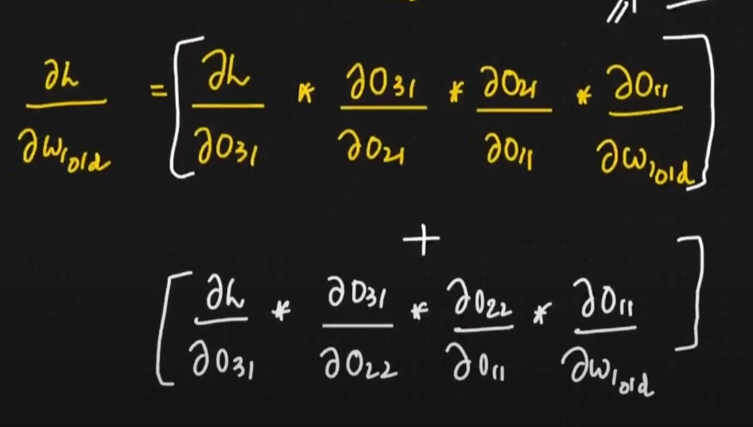 ∂L/∂w₁old = [∂L/∂O31 * ∂O31/∂O21 * ∂O21/∂O11 * ∂O11/∂w₁old]
+
[∂L/∂O31 * ∂O31/∂O22 * ∂O22/∂O11 * ∂O11/∂w₁old]